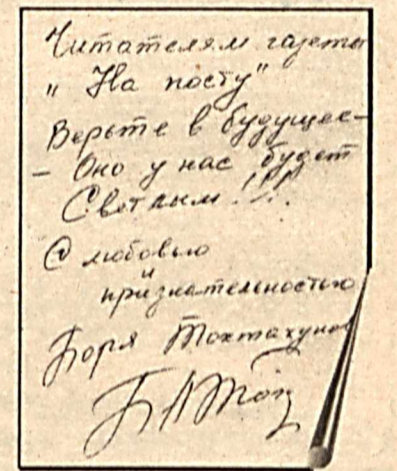 Читателям газеты
"На посту"
Верьте в будущее –
– Оно у нас будет
Светлым!!!
С любовью
и
признательностью
Боря Тохтахунов